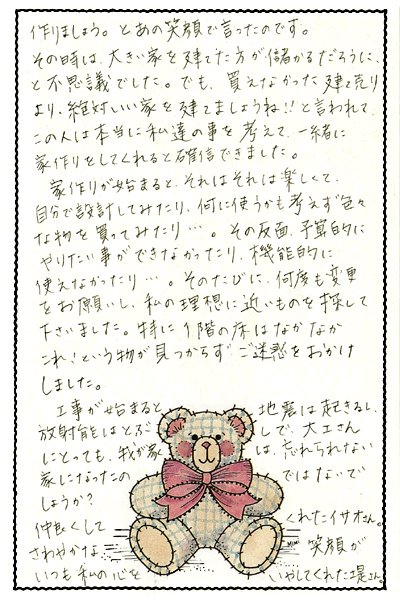 作りましょう。とあの笑顔で言ったのです。
その時は、大きい家を建てた方が儲かるだろうに、
と不思議でした。でも、買えなかった建て売り
より、絶対いい家を建てましょうね!!と言われて、
この人は本当に私達の事を考えて、一緒に
家作りをしてくれると確信できました。
家作りが始まると、それはそれは楽しくて、
自分で設計してみたり、何に使うかも考えず色々
な物を買ってみたり…。その反面、予算的に
やりたい事ができなかったり、機能的に
使えなかったり…。そのたびに、何度も変更
をお願いし、私の理想に近いものを探して
下さいました。特に1階の床はなかなか
これ!という物が見つからず、ご迷惑をおかけ
しました。
工事が始まると 地震は起きるし、
放射能はとぶ しで、大工さん
にとっても、我が家 は、忘れられない
家になったの ではないで
しょうか?
仲良くして くれたイサオさん。
さわやかな 笑顔が
いつも私の心を いやしてくれた堤さん。
MIMI